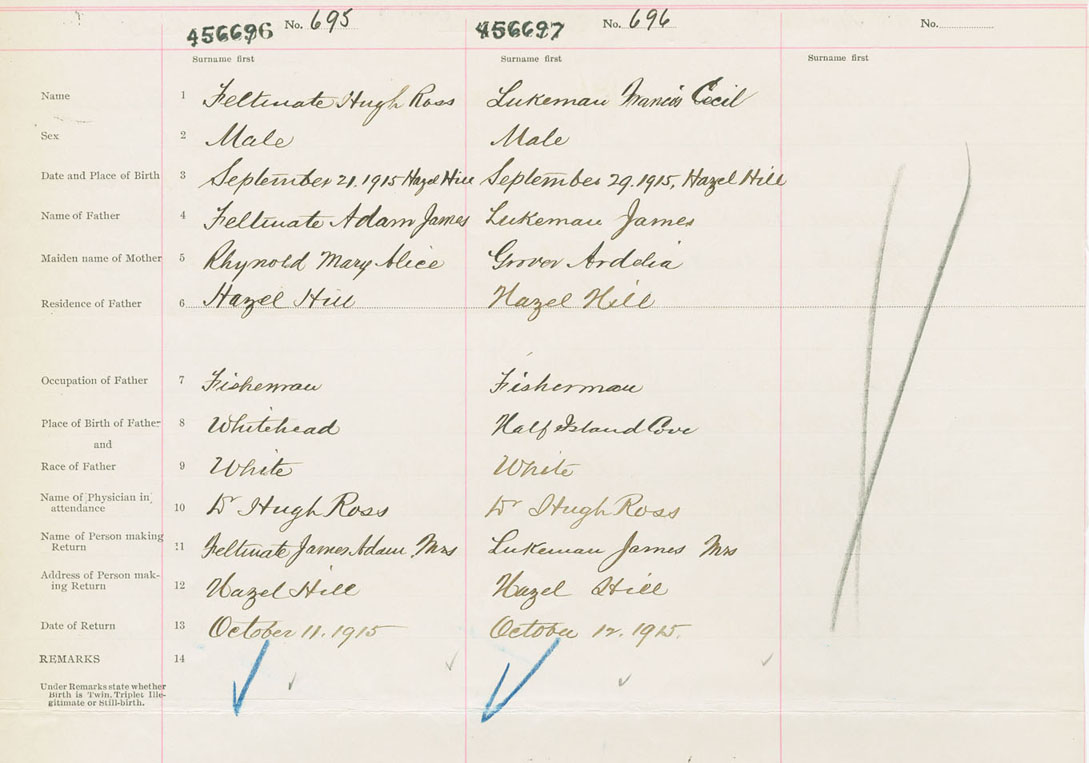 456696 No. 695 456697 No. 696 No.
Surname first Surname first Surname first
Name 1 Feltmate Hugh Ross Lukeman Francis Cecil
Sex 2 Male Male
Date and Place of Birth 3 September 21. 1915 Hazel Hill September 29. 1915, Hazel Hill
Name of Father 4 Feltmate Adam James Lukeman James
Maiden name of Mother 5 Rhynold Mary Alice Grover Ardelia
Residence of Father 6 Hazel Hill Hazel Hill
Occupation of Father 7 Fisherman Fisherman
Place of Birth of Father 8 Whitehead Half Island Cove
and
Race of Father 9 White White
Name of Physician in
attendance 10 Dr Hugh Ross Dr Hugh Ross
Name of Person making
Return 11 Feltmate James Adam Mrs Lukeman James Mrs
Address of Person mak-
ing Return 12 Hazel Hill Hazel Hill
Date of Return 13 October 11. 1915 October 12. 1915.
REMARKS 14
Under Remarks state whether
Birth is Twin, Triplet Ille-
gitimate or Still-birth.